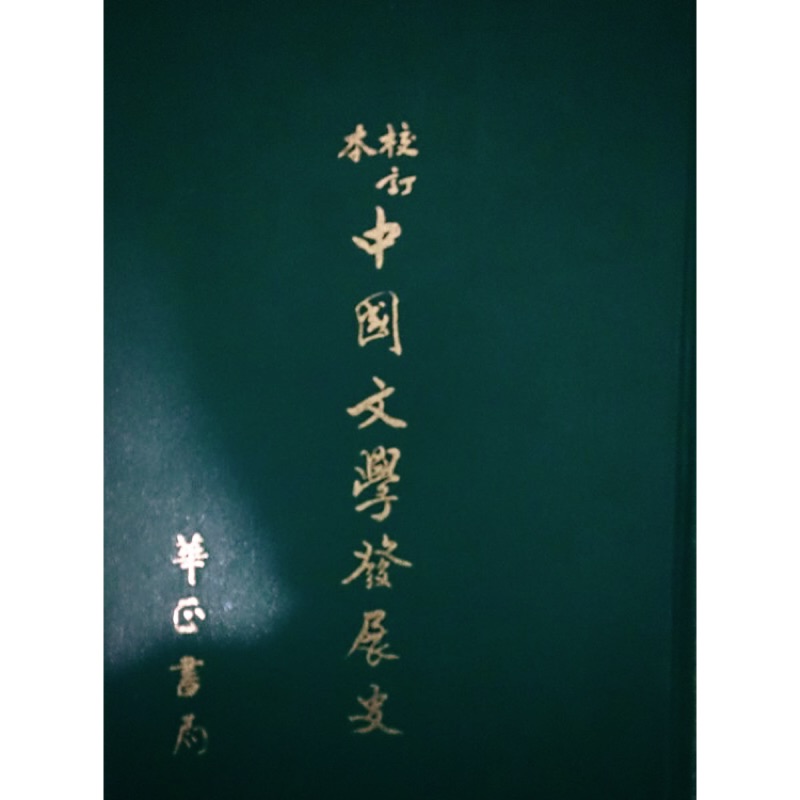 校訂本
中國文學發展史
華正書局